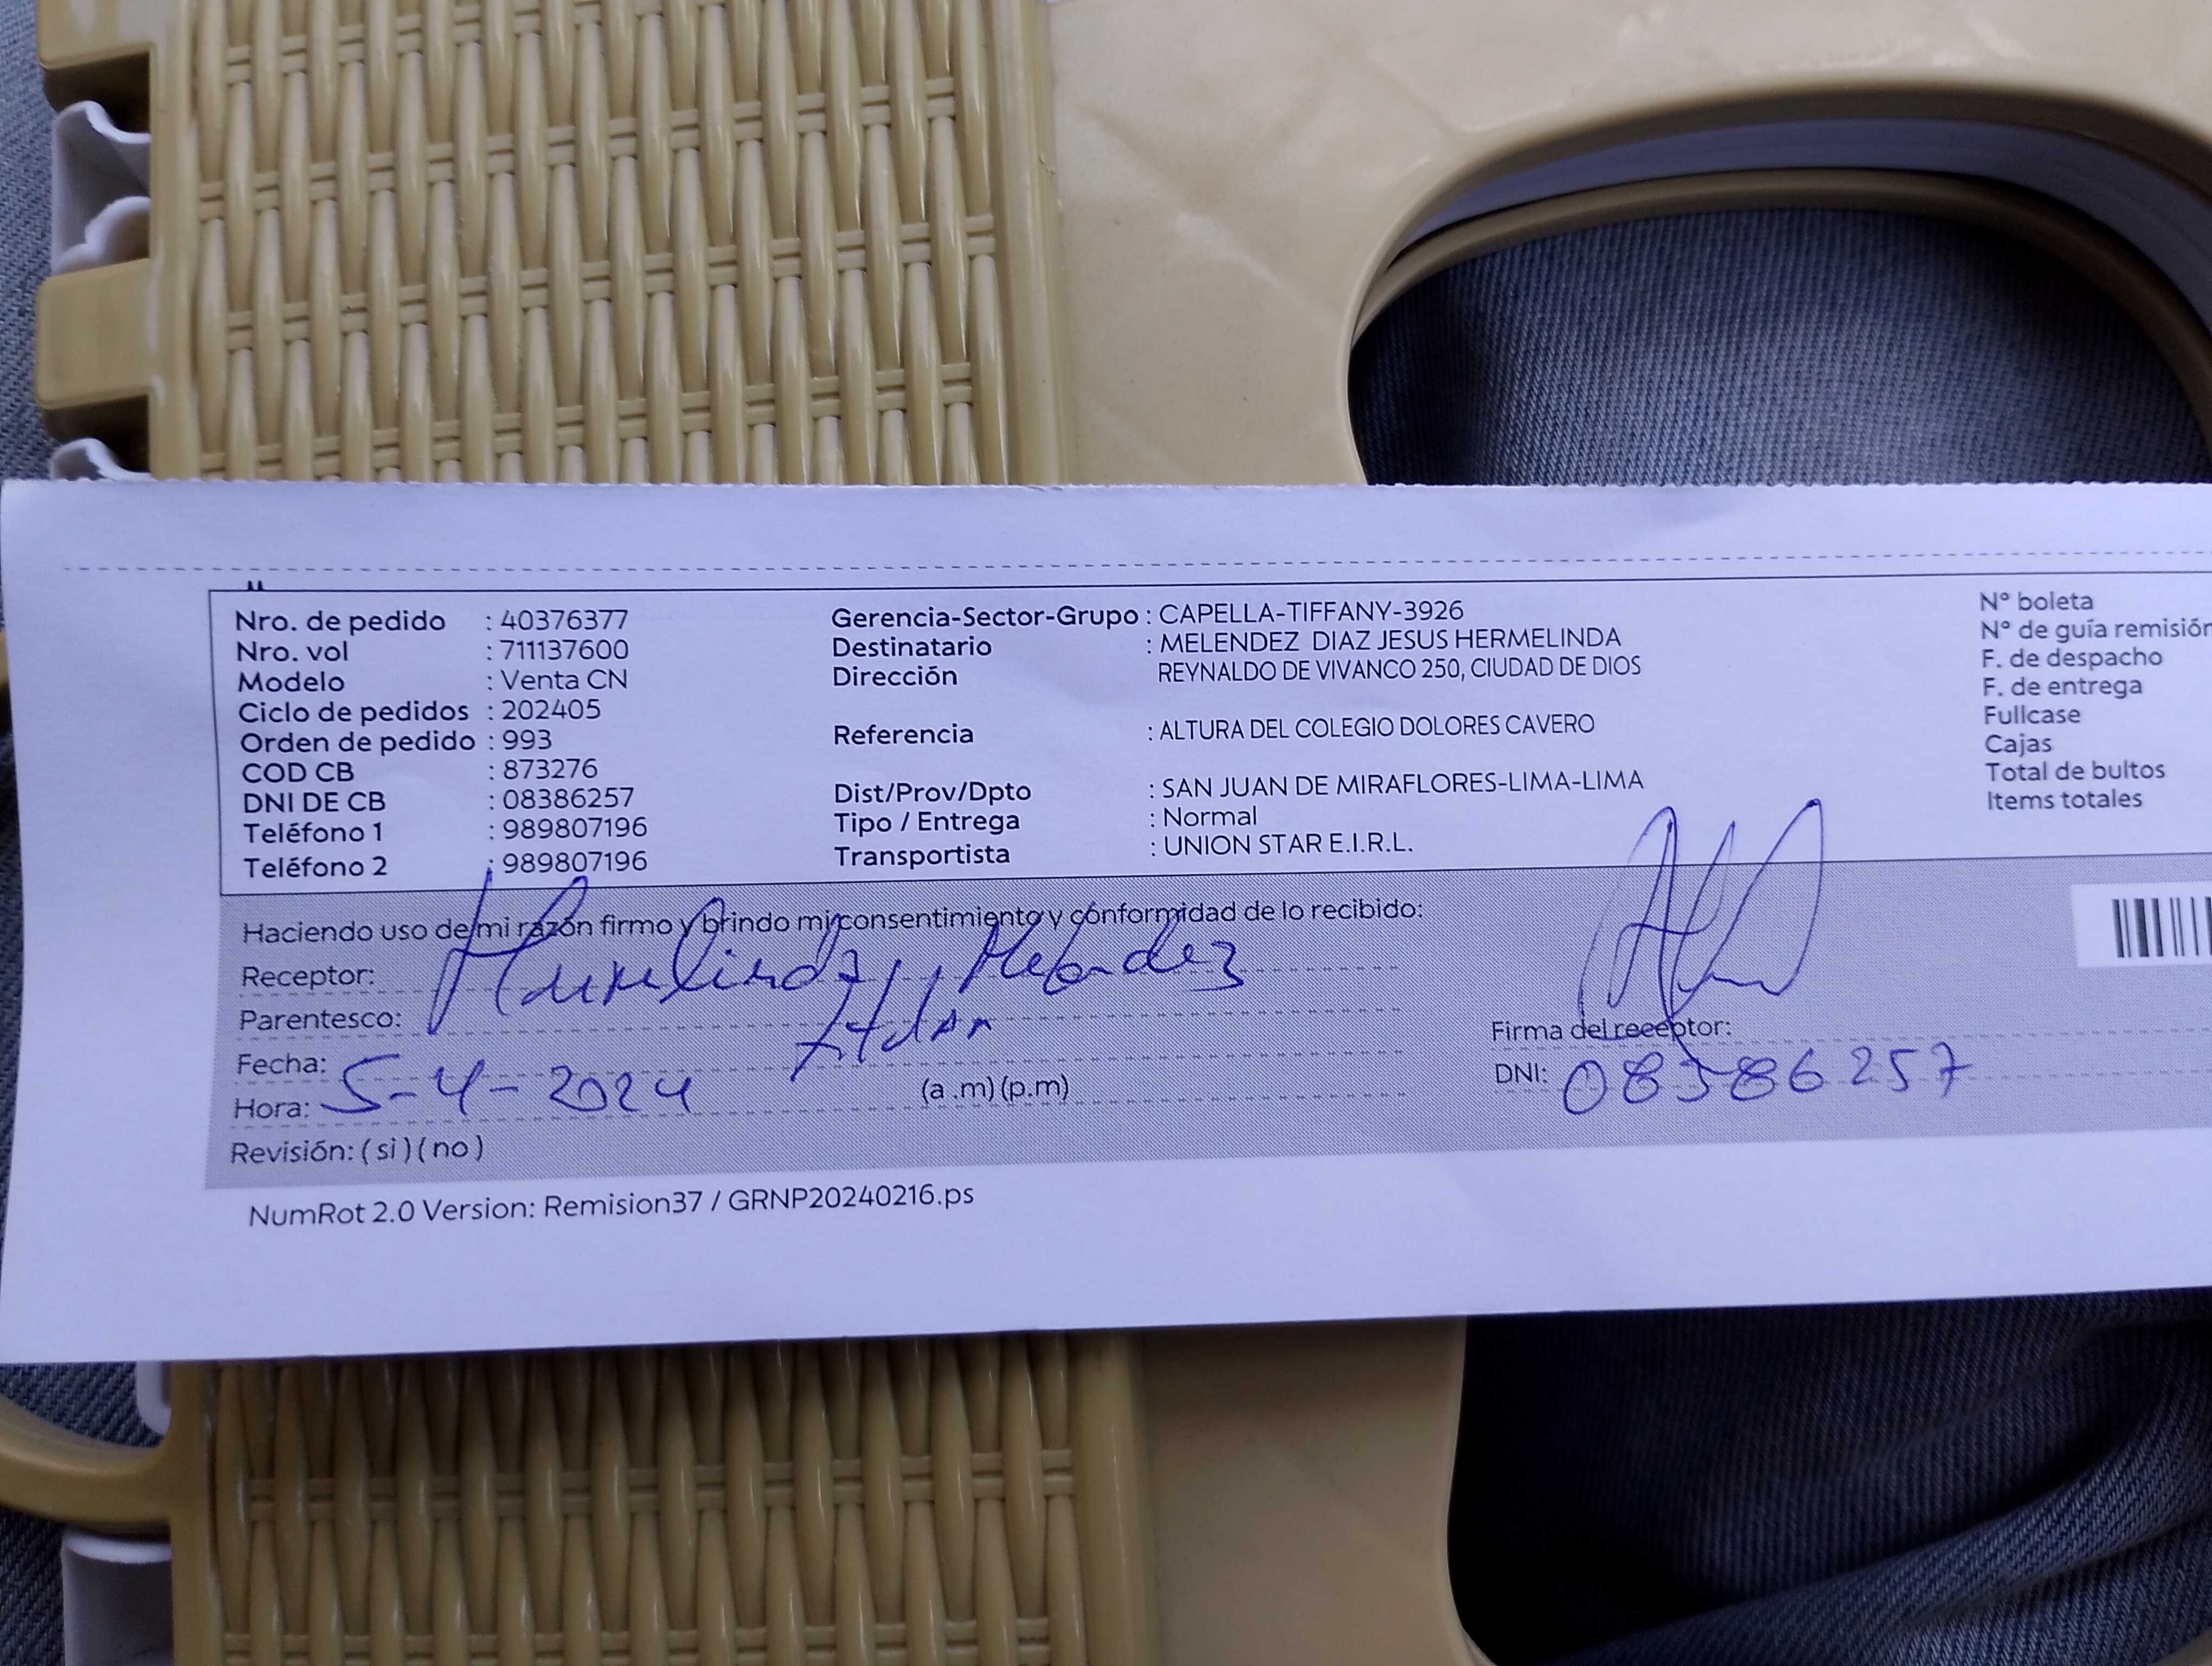 Nro. de pedido : 40376377
Nro. vol : 711137600
Modelo : Venta CN
Ciclo de pedidos : 202405
Orden de pedido : 993
COD CB : 873276
DNI DE CB : 08386257
Teléfono 1 : 989807196
Teléfono 2 : 989807196
Gerencia-Sector-Grupo : CAPELLA-TIFFANY-3926
Destinatario : MELENDEZ DIAZ JESUS HERMELINDA
Dirección REYNALDO DE VIVANCO 250, CIUDAD DE DIOS
Referencia : ALTURA DEL COLEGIO DOLORES CAVERO
Dist/Prov/Dpto : SAN JUAN DE MIRAFLORES-LIMA-LIMA
Tipo / Entrega : Normal
Transportista : UNION STAR E.I.R.L.
N° boleta
N° de guía remisión
F. de despacho
F. de entrega
Fullcase
Cajas
Total de bultos
Items totales
Haciendo uso de mi razón firmo y brindo mi consentimiento y conformidad de lo recibido:
Receptor: Hermelinda Melendez
Parentesco:
Fecha: 5-4-2024
Hora: (a .m) (p.m)
Revisión: ( si ) ( no )
Firma del receptor:
DNI: 08386257
NumRot 2.0 Version: Remision37 / GRNP20240216.ps